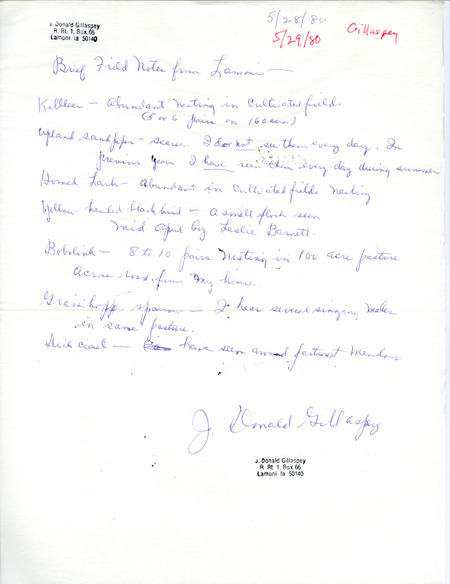 J. Donald Gillaspey
R. Rt. 1, Box 66
Lamoni Ia 50140
5/28/80
5/29/80
Gillaspey
Brief Field Notes from Lamoni —
Killdeer — Abundant nesting in cultivated fields
(5 or 6 pairs on 160 acres)
Upland sandpiper — scarce. I do not see them every day. In
previous years I have seen them every day during summer
Horned Lark — Abundant in cultivated fields nesting
Yellow-headed blackbird — a small flock seen
mid April by Leslie Barnett.
Bobolink — 8 to 10 pairs nesting in 100 acre pasture
across road from my house.
Grasshopper sparrow — I hear several singing males
in same pasture.
Dickcissel — have seen around pastures &
J. Donald Gillaspey
J. Donald Gillaspey
R. Rt. 1, Box 66
Lamoni Ia 50140